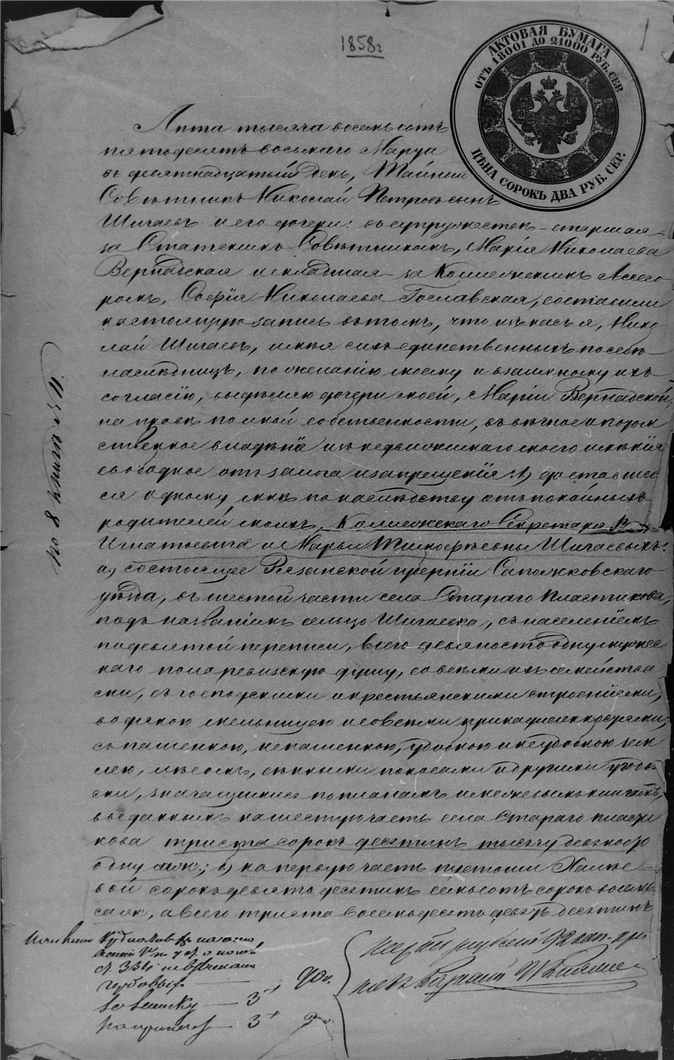 1858 г
АКТОВАЯ БУМАГА
ОТЪ 18001 ДО 21000 РУБ. СЕР.
ЦѢНА СОРОКЪ ДВА РУБ. СЕР.
Лѣта тысяча восемьсотъ
пятьдесятъ восьмаго Марта
въ девятнадцатый день, Тайный
Совѣтникъ Николай Петровъ сынъ
Шигаевъ и его дочери: въ супружествѣ – старшая
за Статскимъ Совѣтникомъ, Марія Николаева
Вернадская и младшая – за Коллежскимъ Ассесо-
ромъ, Софія Николаева Гославская, составили
настоящую запись въ томъ, что изъ насъ я, Нико-
лай Шигаевъ, имѣя сихъ единственныхъ по себѣ
наслѣдницъ, по желанію моему и взаимному ихъ
согласію, выдѣляю дочери моей, Маріи Вернадской,
на правѣ полной собственности, въ вѣчное и потом-
ственное владѣніе изъ недвижимаго моего имѣнія
свободное отъ залога и запрещенія: 1) доставше-
еся одному мнѣ по наслѣдству отъ покойныхъ
родителей моихъ, Коллежскаго Секретаря
Игнатьевича и Марьи Тимофѣевны Шигаевыхъ:
а) состоящее Рязанской губерніи Сапожковскаго
уѣзда, въ шестой части села Стараго Пластикова,
подъ названіемъ сельцо Шигаевка, съ населеніемъ
по девятой переписи, всего девяносто одну мужес-
каго пола ревизскую душу, со всѣми ихъ семейства-
ми, съ господскими и крестьянскими строеніями,
водяною мельницею и со всѣми принадлежностями,
съ пашенною, непашенною, удобною и неудобною зем-
лею, лѣсомъ, сѣнными покосами и другими угодья-
ми, значащимися по планамъ и межевымъ книгамъ,
выданнымъ на шестую часть села Стараго Пласти-
кова триста сорокъ десятинъ тысячу девяносто
одну саж; б) на первую часть пустоши
сорокъ девять десятинъ семьсотъ сорокъ восемь
саж, а всего триста восемьдесятъ девять десятинъ
по 8 книга № 11.